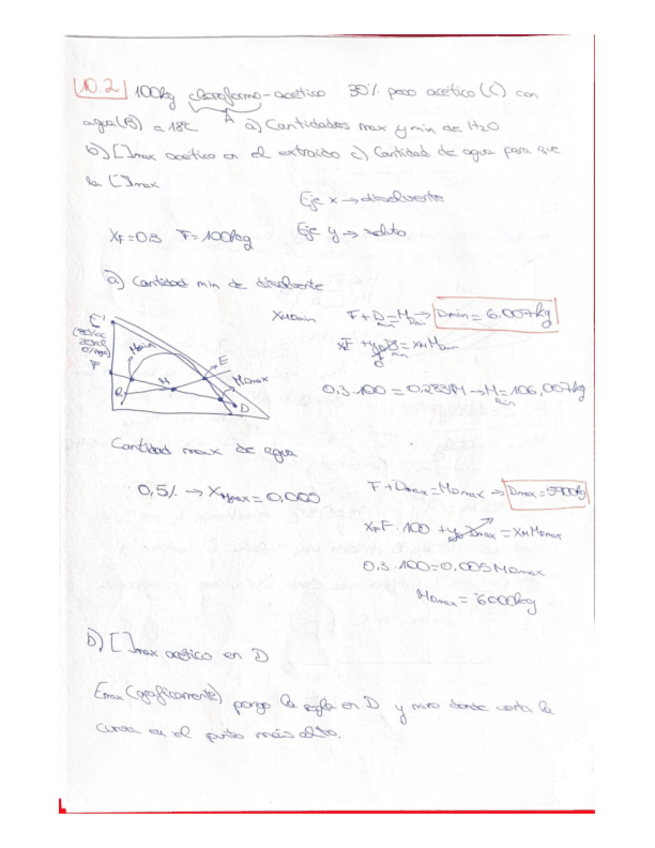 10.2 100kg cloroformo-acético 30% peso acético (C) con
agua (B) a 18ºC A a) Cantidades max y min de H2O
b) [ ]max acético en el extraido c) Cantidad de agua para que
la [ ]max
Eje x → disolvente
XF=0,3 F=100kg Eje y → soluto
a) Cantidad min de disolvente
XMDmin F+Dmin=MDmin → Dmin = 6,007kg
xFF + yDDmin = xM MDmin
0
0,3·100 = 0,283M → Mmin = 106,007kg
E'
F
Mmin
E
MDmax
R
M
D
Cantidad max de agua
0,5% → XMmax = 0,005
F+Dmax = MDmax → Dmax = 5900kg
XFF·100 + yDDmax = XM MDmax
0,3·100 = 0,005 MDmax
MDmax = 6000kg
b) [ ]max acético en D
Emax (graficamente) pongo la regla en D y miro donde corta la
curva en el punto más alto.